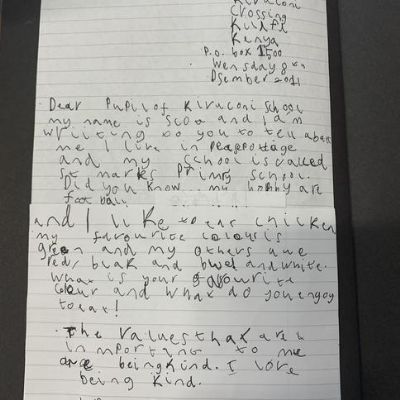 Kiruconi
Crossing
Kilifi
Kenya
P.o. box 1500
Wensday 8th
Dsember 2021
Dear Pupil of Kiruconi School
my name is Scox and I am
writing to you to tell about
me I live in Peaspottage
and my school is called
St marks Primry school.
Did you know my hobby are
foot ball
and I like to ear chicken
my favourite colour is
green and my others are
red, black and blue and white.
What is your favourite
colour and what do you engoy
to eat!
The values that are
important to me
are being kind. I love
being kind.